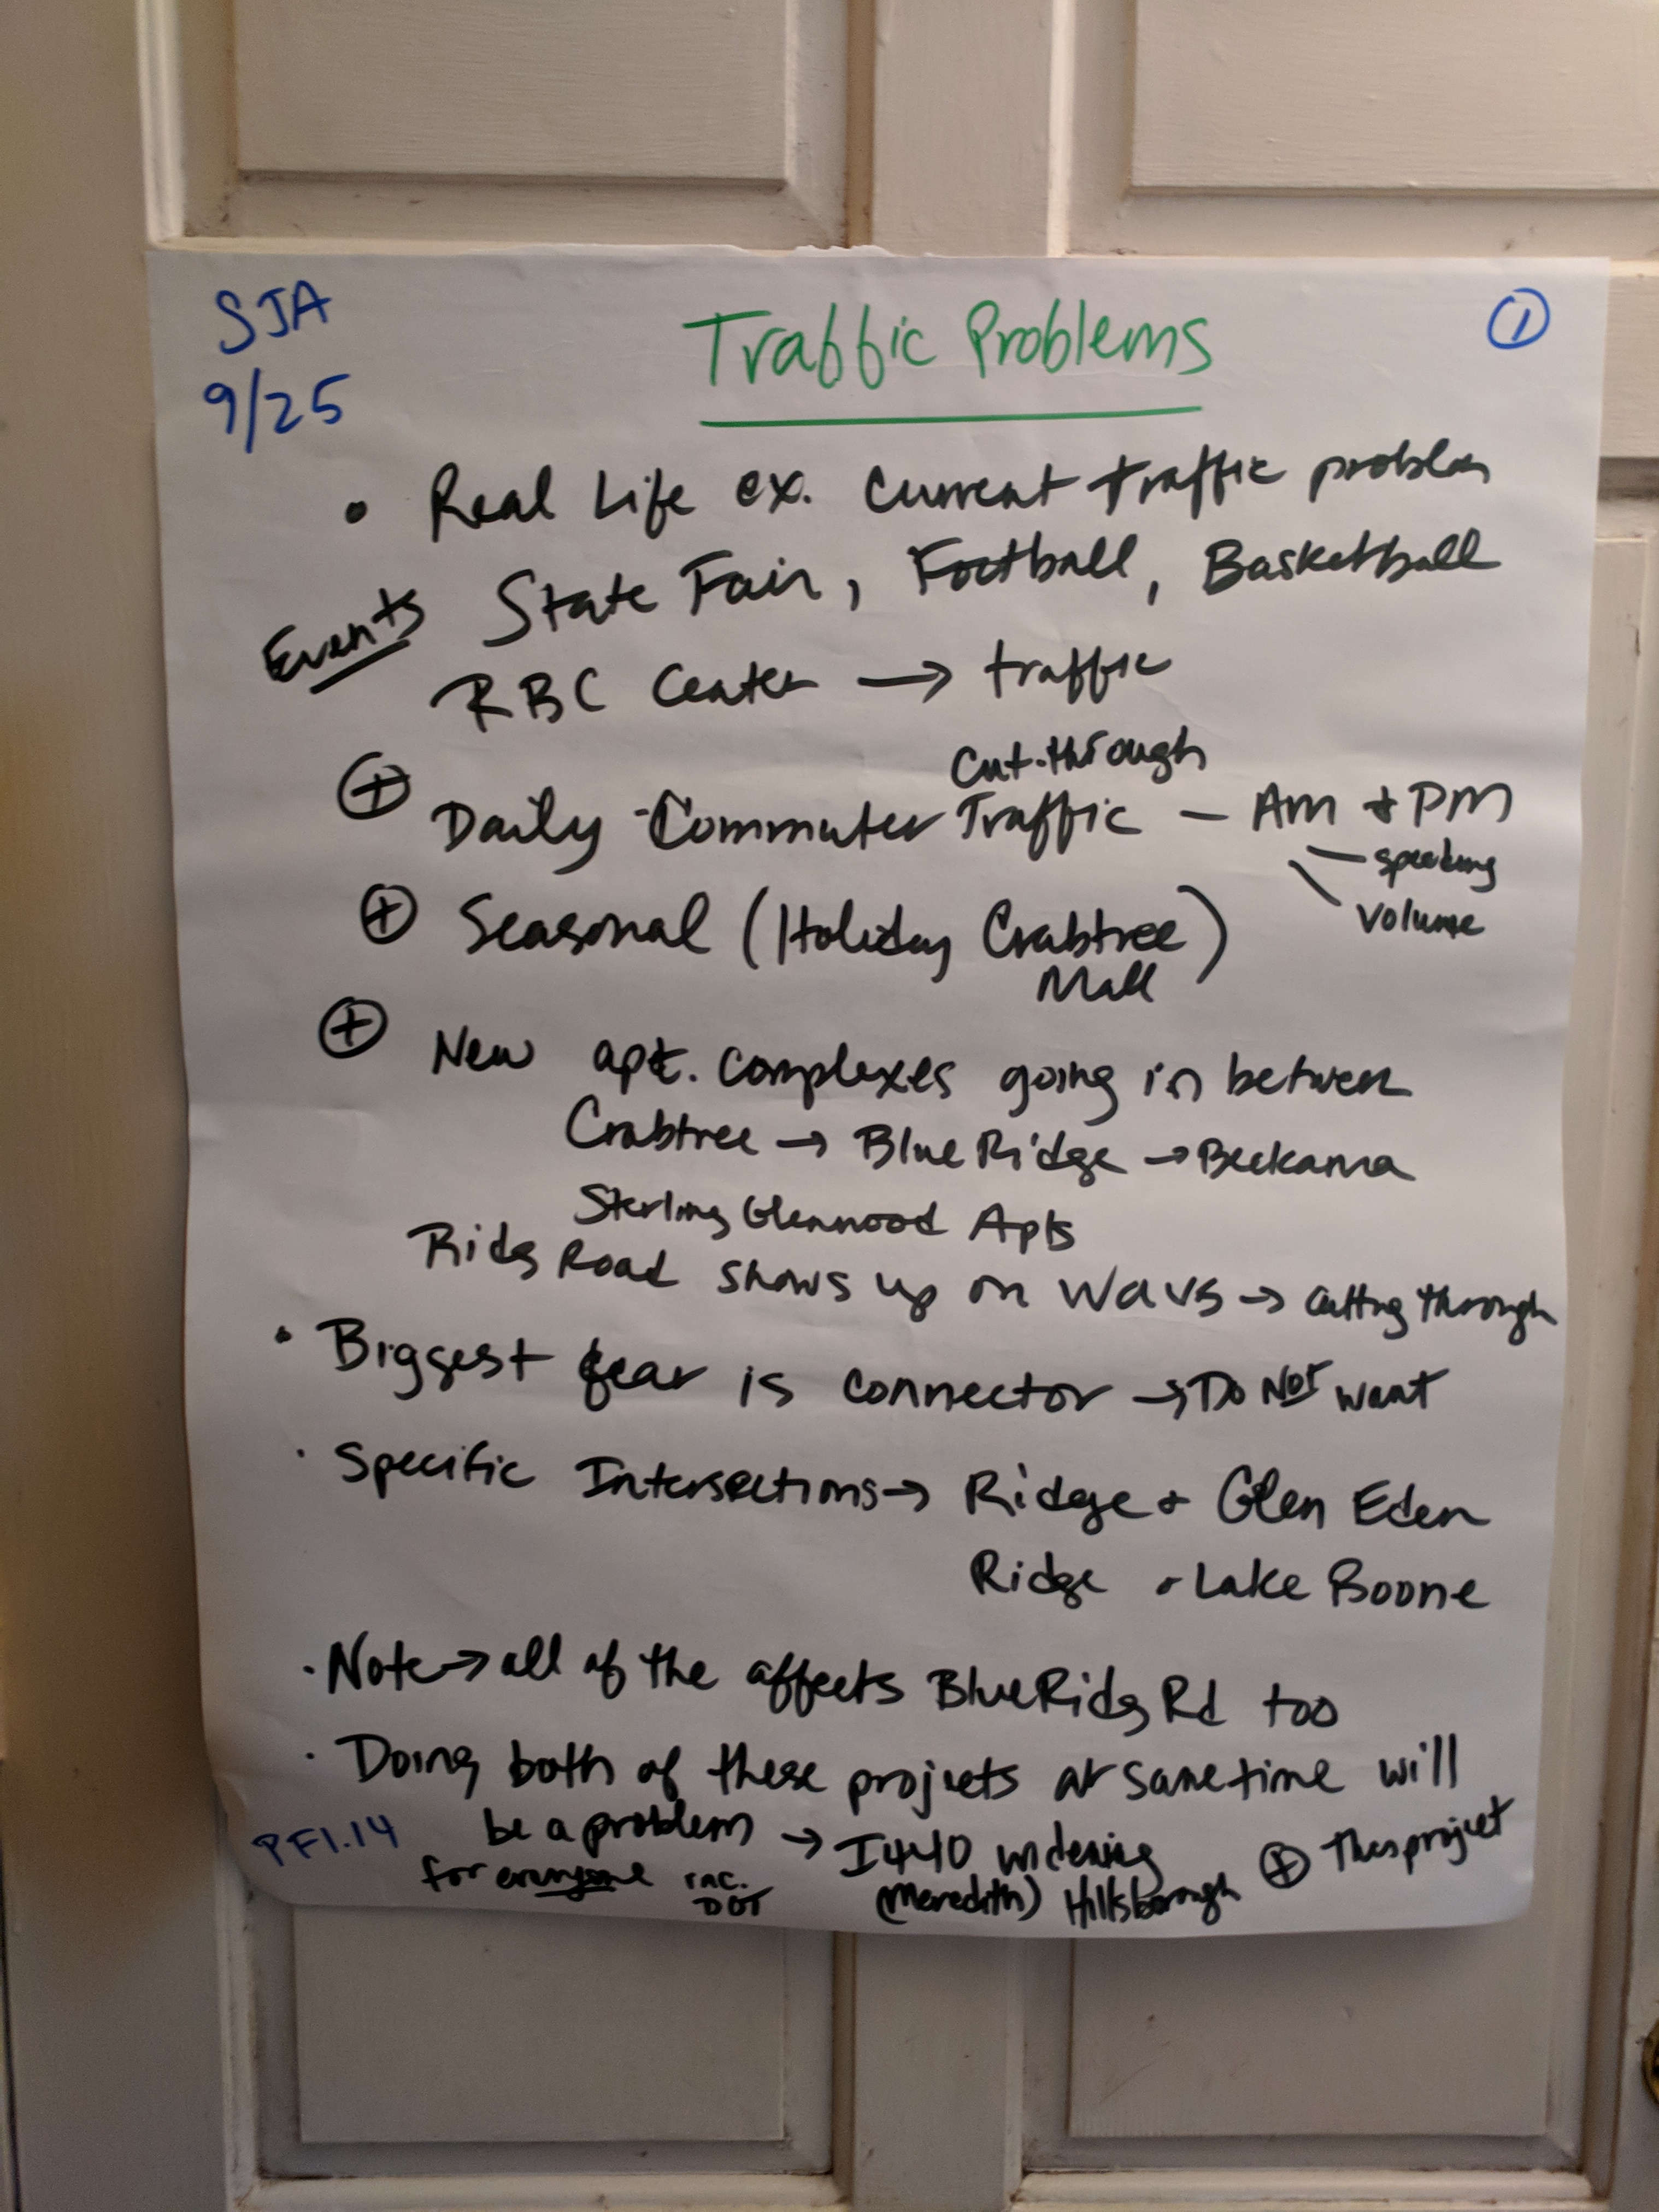 SJA
9/25
Traffic Problems
1
• Real Life ex. Current traffic problem
Events State Fair, Football, Basketball
RBC Center → traffic
⊕ Daily Commuter Cut-through Traffic – AM + PM
– speeding
volume
⊕ Seasonal (Holiday Crabtree Mall)
⊕ New apt. complexes going in between
Crabtree → Blue Ridge → Beckana
Sterling Glenwood Apts
Ridg Road shows up on Waves → cutting through
• Biggest fear is connector → Do NOT want
• Specific Intersections → Ridge + Glen Eden
Ridge + Lake Boone
• Note → all of the affects Blue Ridg Rd too
• Doing both of these projects at same time will
be a problem → I440 widening ⊕ This project
for everyone inc. DOT (Meredith) Hillsborough
PF1.14